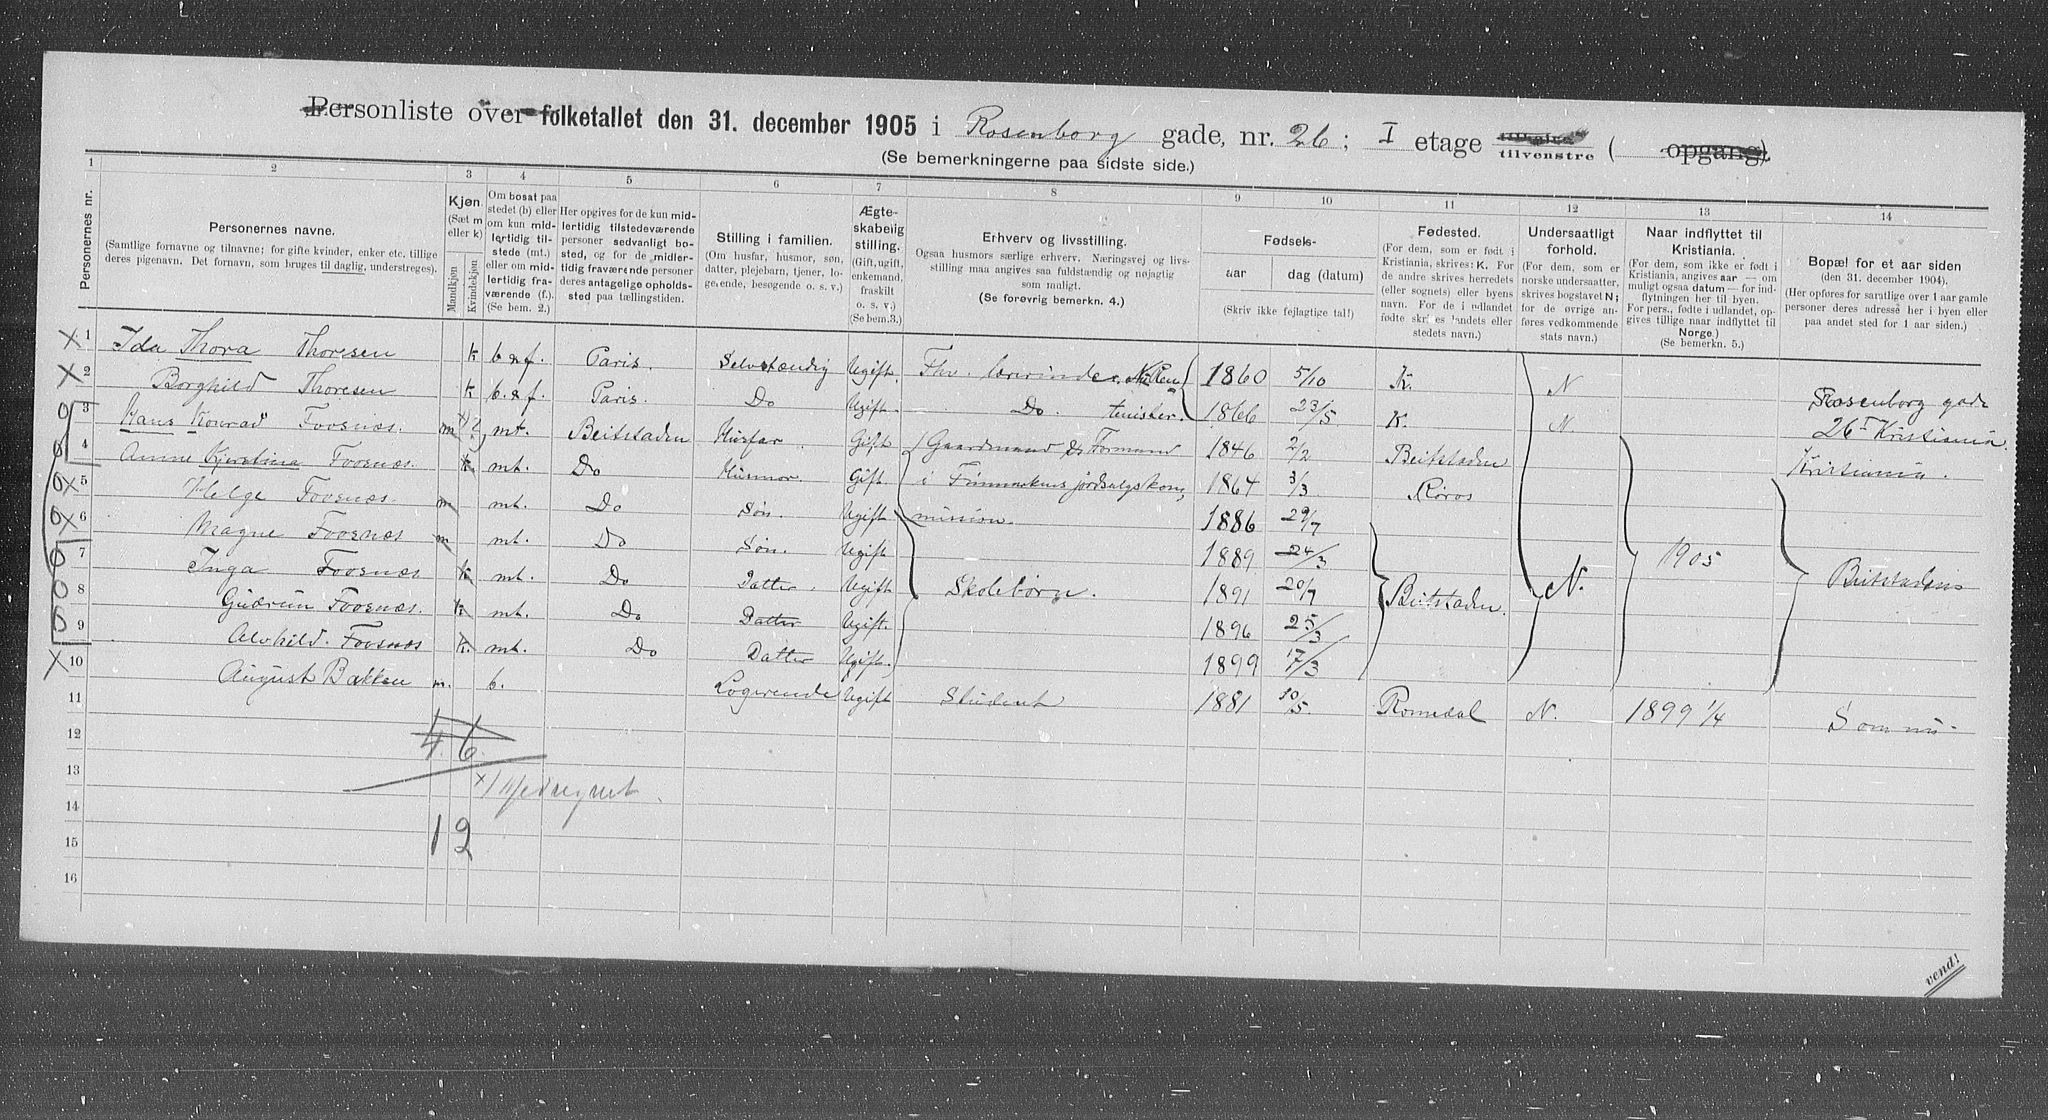 Personliste over folketallet den 31. december 1905 i Rosenborg gade, nr. 26; I etage tilvenstre ( opgang).
(Se bemerkningerne paa sidste side.)
1 2 3 4 5 6 7 8 9 10 11 12 13 14
Personernes nr.
Personernes navne.
(Samtlige fornavne og tilnavne; for gifte kvinder, enker etc. tillige
deres pigenavn. Det fornavn, som bruges til daglig, understreges).
Kjøn.
(Sæt m
eller k)
Mandkjøn
Kvindekjøn
Om bosat paa
stedet (b) eller
om kun mid-
lertidig til-
stede (mt.)
eller om mid-
lertidig fra-
værende (f.)
(Se bem. 2.)
Her opgives for de kun mid-
lertidig tilstedeværende
personer sedvanligt bo-
sted, og for de midler-
tidig fraværende personer
deres antagelige opholds-
sted paa tællingstiden.
Stilling i familien.
(Om husfar, husmor, søn,
datter, plejebarn, tjener, lo-
gerende, besøgende o. s. v.)
Ægte-
skabelig
stilling.
(Gift, ugift,
enkemand,
fraskilt
o. s. v.)
(Se bem.3.)
Erhverv og livsstilling.
Ogsaa husmors særlige erhverv. Næringsvej og livs-
stilling maa angives saa fuldstændig og nøjagtig
som muligt.
(Se forøvrig bemerkn. 4.)
Fødsels-
aar
dag (datum)
(Skriv ikke fejlagtige tal!)
Fødested.
(For dem, som er født i
Kristiania, skrives: K. For
de andre skrives herredets
(eller sognets) eller byens
navn. For de i udlandet
fødte skrives landets eller
stedets navn.)
Undersaatligt
forhold.
(For dem, som er
norske undersaatter,
skrives bogstavet N;
for de øvrige an-
føres vedkommende
stats navn.)
Naar indflyttet til
Kristiania.
(For dem, som ikke er født i
Kristiania, angives aar — om
muligt ogsaa datum — for ind-
flytningen her til byen.
For pers., fødte i udlandet, op-
gives tillige naar indflyttet til
Norge.)
(Se bemerkn. 5.)
Bopæl for et aar siden
(den 31. december 1904).
(Her opføres for samtlige over 1 aar gamle
personer deres adresse her i byen eller
paa andet sted for 1 aar siden.)
X 1 Ida Thora Thoresen k b & f. Paris. Selvstændig Ugift. Fhv. lærerinde 1860 5/10 K. N
X 2 Borghild Thoresen k b. & f. Paris. Do Ugift. Do. 1866 23/5 K. N Rosenborg gade
26 I Kristiania.
0 3 Hans Konrad Fosnæs. m mt. Beitstaden Husfar. Gift Gaardmand & Formand 1846 2/2 Beitstaden Kristiania.
0 4 Anne Kjerstina Fosnæs. k mt. Do Husmor. Gift. i Finmarkens jordsalgskom, 1864 3/3 Røros
0 X 5 Helge Fosnæs. m mt. Do Søn. Ugift mission. 1886 29/7
0 X 6 Magne Fosnæs m mt. Do Søn. Ugift 1889 24/3 1905
0 7 Inga Fosnæs k mt. Do Datter. Ugift Skolebørn. 1891 20/7 Beitstaden. N. Beitstaden
0 8 Gudrun Fosnæs. k mt. Do Datter Ugift. 1896 25/3
0 9 Alvhild. Fosnæs k. mt. Do Datter Ugift. 1899 17/3
X 10 August Bakken m. b. Logerende Ugift Student 1881 10/5 Romedal N. 1899 1/4 Som nu
11
12 4. 6.
13 x) Medregnet.
14
15 1 2
16
vend!